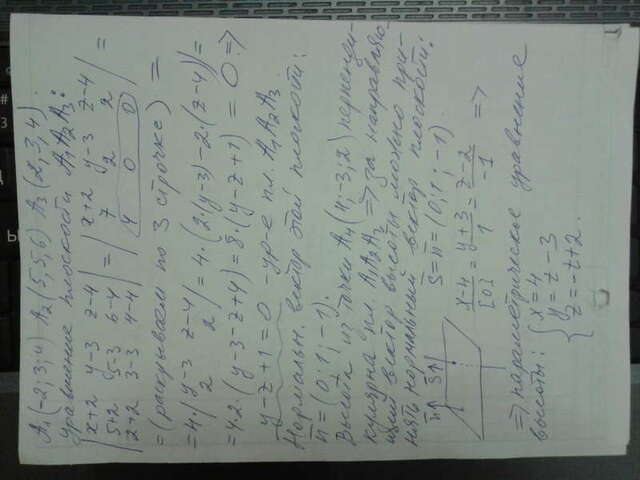 A₁(-2; 3; 4) A₂(5; 5; 6) A₃(2; 3, 4).
уравнение плоскости A₁A₂A₃:
|x+2 y-3 z-4| |x+2 y-3 z-4|
|5+2 5-3 6-4| = |7 2 2| =
|2+2 3-3 4-4| |4 0 0|
= (раскрываем по 3 строчке) =
= 4·|y-3 z-4; 2 2| = 4·(2·(y-3) - 2·(z-4)) =
= 4·2·(y-3-z+4) = 8·(y-z+1) = 0 ⇒
y-z+1=0 - ур-е пл. A₁A₂A₃
Нормальн. вектор этой плоскости:
n = (0; 1; -1).
Высота из точки A₄(4; -3; 2) перпенди-
кулярна пл. A₁A₂A₃ ⇒ за направляю-
щий вектор высоты можно при-
нять нормальный вектор плоскости:
n↑ s↑ s=n=(0; 1; -1)
x-4/[0] = y+3/1 = z-2/-1 ⇒
⇒ параметрическое уравнение
высоты: { x=4
y=t-3
z=-t+2.